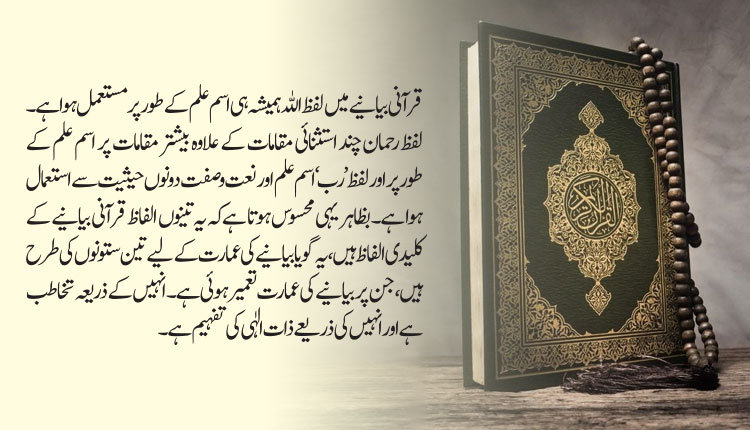 قرآنی بیانیے میں لفظ اللہ ہمیشہ ہی اسم علم کے طور پر مستعمل ہوا ہے۔
لفظ رحمان چند استثنائی مقامات کے علاوہ بیشتر مقامات پر اسم علم کے
طور پر اور لفظ ’رب‘ اسم علم اور نعت وصفت دونوں حیثیت سے استعمال
ہوا ہے۔ بظاہر یہی محسوس ہوتا ہے کہ یہ تینوں الفاظ قرآنی بیانیے کے
کلیدی الفاظ ہیں، یہ گویا بیانیے کی عمارت کے لیے تین ستونوں کی طرح
ہیں، جن پر بیانیے کی عمارت تعمیر ہوئی ہے۔ انہیں کے ذریعہ تخاطب
ہے اور انہیں کی ذریعے ذات الٰہی کی تفہیم ہے۔
القرآن الكريم